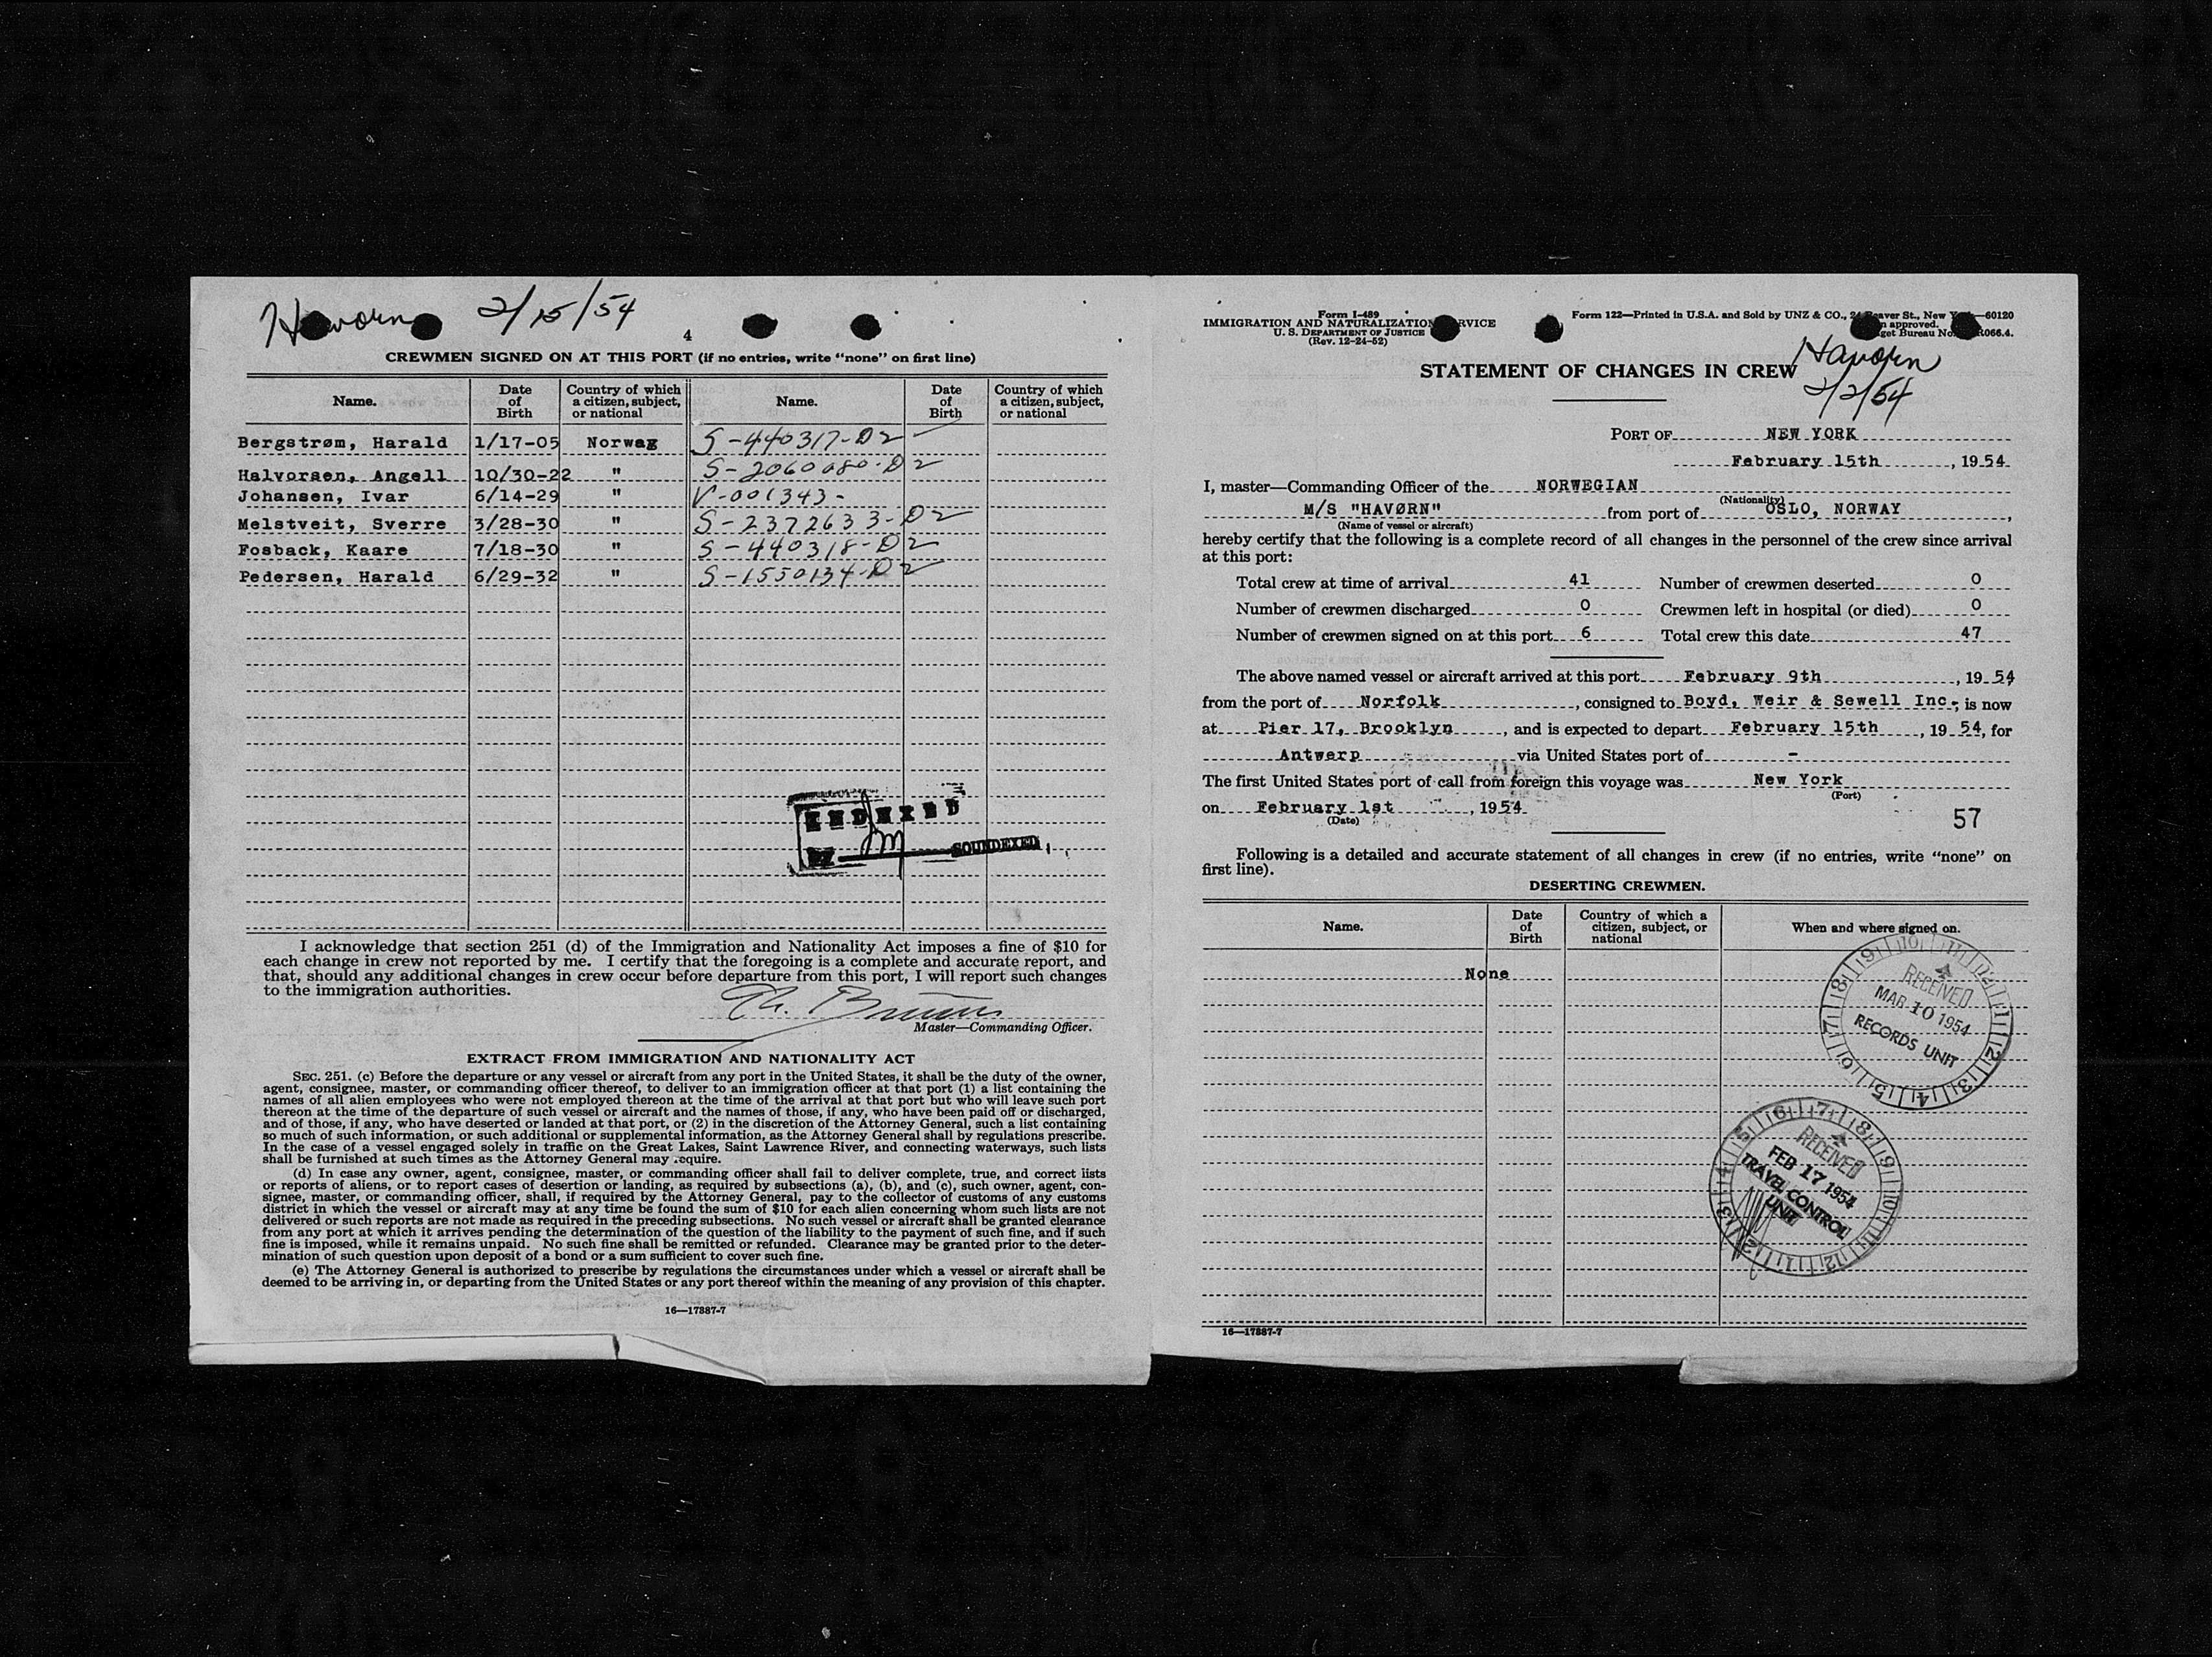 Havorn 2/15/54
4
CREWMEN SIGNED ON AT THIS PORT (if no entries, write "none" on first line)
Name. Date of Birth Country of which a citizen, subject, or national Name. Date of Birth Country of which a citizen, subject, or national
Bergstrøm, Harald 1/17-05 Norwag S-440317-D2
Halvorsen, Angell 10/30-22 " S-2060080-D2
Johansen, Ivar 6/14-29 " V-001343-
Melstveit, Sverre 3/28-30 " S-2372633-D2
Fosback, Kaare 7/18-30 " S-440318-D2
Pedersen, Harald 6/29-32 " S-1550134-D2
INDEXED
BY SOUNDEXED
I acknowledge that section 251 (d) of the Immigration and Nationality Act imposes a fine of $10 for
each change in crew not reported by me. I certify that the foregoing is a complete and accurate report, and
that, should any additional changes in crew occur before departure from this port, I will report such changes
to the immigration authorities.
Master—Commanding Officer.
EXTRACT FROM IMMIGRATION AND NATIONALITY ACT
SEC. 251. (c) Before the departure or any vessel or aircraft from any port in the United States, it shall be the duty of the owner,
agent, consignee, master, or commanding officer thereof, to deliver to an immigration officer at that port (1) a list containing the
names of all alien employees who were not employed thereon at the time of the arrival at that port but who will leave such port
thereon at the time of the departure of such vessel or aircraft and the names of those, if any, who have been paid off or discharged,
and of those, if any, who have deserted or landed at that port, or (2) in the discretion of the Attorney General, such a list containing
so much of such information, or such additional or supplemental information, as the Attorney General shall by regulations prescribe.
In the case of a vessel engaged solely in traffic on the Great Lakes, Saint Lawrence River, and connecting waterways, such lists
shall be furnished at such times as the Attorney General may require.
(d) In case any owner, agent, consignee, master, or commanding officer shall fail to deliver complete, true, and correct lists
or reports of aliens, or to report cases of desertion or landing, as required by subsections (a), (b), and (c), such owner, agent, con-
signee, master, or commanding officer, shall, if required by the Attorney General, pay to the collector of customs of any customs
district in which the vessel or aircraft may at any time be found the sum of $10 for each alien concerning whom such lists are not
delivered or such reports are not made as required in the preceding subsections. No such vessel or aircraft shall be granted clearance
from any port at which it arrives pending the determination of the question of the liability to the payment of such fine, and if such
fine is imposed, while it remains unpaid. No such fine shall be remitted or refunded. Clearance may be granted prior to the deter-
mination of such question upon deposit of a bond or a sum sufficient to cover such fine.
(e) The Attorney General is authorized to prescribe by regulations the circumstances under which a vessel or aircraft shall be
deemed to be arriving in, or departing from the United States or any port thereof within the meaning of any provision of this chapter.
16—17887-7
Form I-489
IMMIGRATION AND NATURALIZATION SERVICE
U. S. DEPARTMENT OF JUSTICE
(Rev. 12-24-52)
Form 122—Printed in U.S.A. and Sold by UNZ & CO., 24 Beaver St., New York—60120
approved.
Budget Bureau No. R066.4.
STATEMENT OF CHANGES IN CREW
Havorn
2/2/54
PORT OF NEW YORK
February 15th, 1954
I, master—Commanding Officer of the NORWEGIAN
(Nationality)
M/S "HAVØRN" from port of OSLO, NORWAY,
(Name of vessel or aircraft)
hereby certify that the following is a complete record of all changes in the personnel of the crew since arrival
at this port:
Total crew at time of arrival 41 Number of crewmen deserted 0
Number of crewmen discharged 0 Crewmen left in hospital (or died) 0
Number of crewmen signed on at this port 6 Total crew this date 47
The above named vessel or aircraft arrived at this port February 9th, 1954
from the port of Norfolk, consigned to Boyd, Weir & Sewell Inc.; is now
at Pier 17, Brooklyn, and is expected to depart February 15th, 1954, for
Antwerp via United States port of -
The first United States port of call from foreign this voyage was New York
(Port)
on February 1st, 1954
(Date)
57
Following is a detailed and accurate statement of all changes in crew (if no entries, write "none" on
first line).
DESERTING CREWMEN.
Name. Date of Birth Country of which a citizen, subject, or national When and where signed on.
None
RECEIVED
MAR 10 1954
RECORDS UNIT
RECEIVED
FEB 17 1954
TRAVEL CONTROL
UNIT
16—17887-7